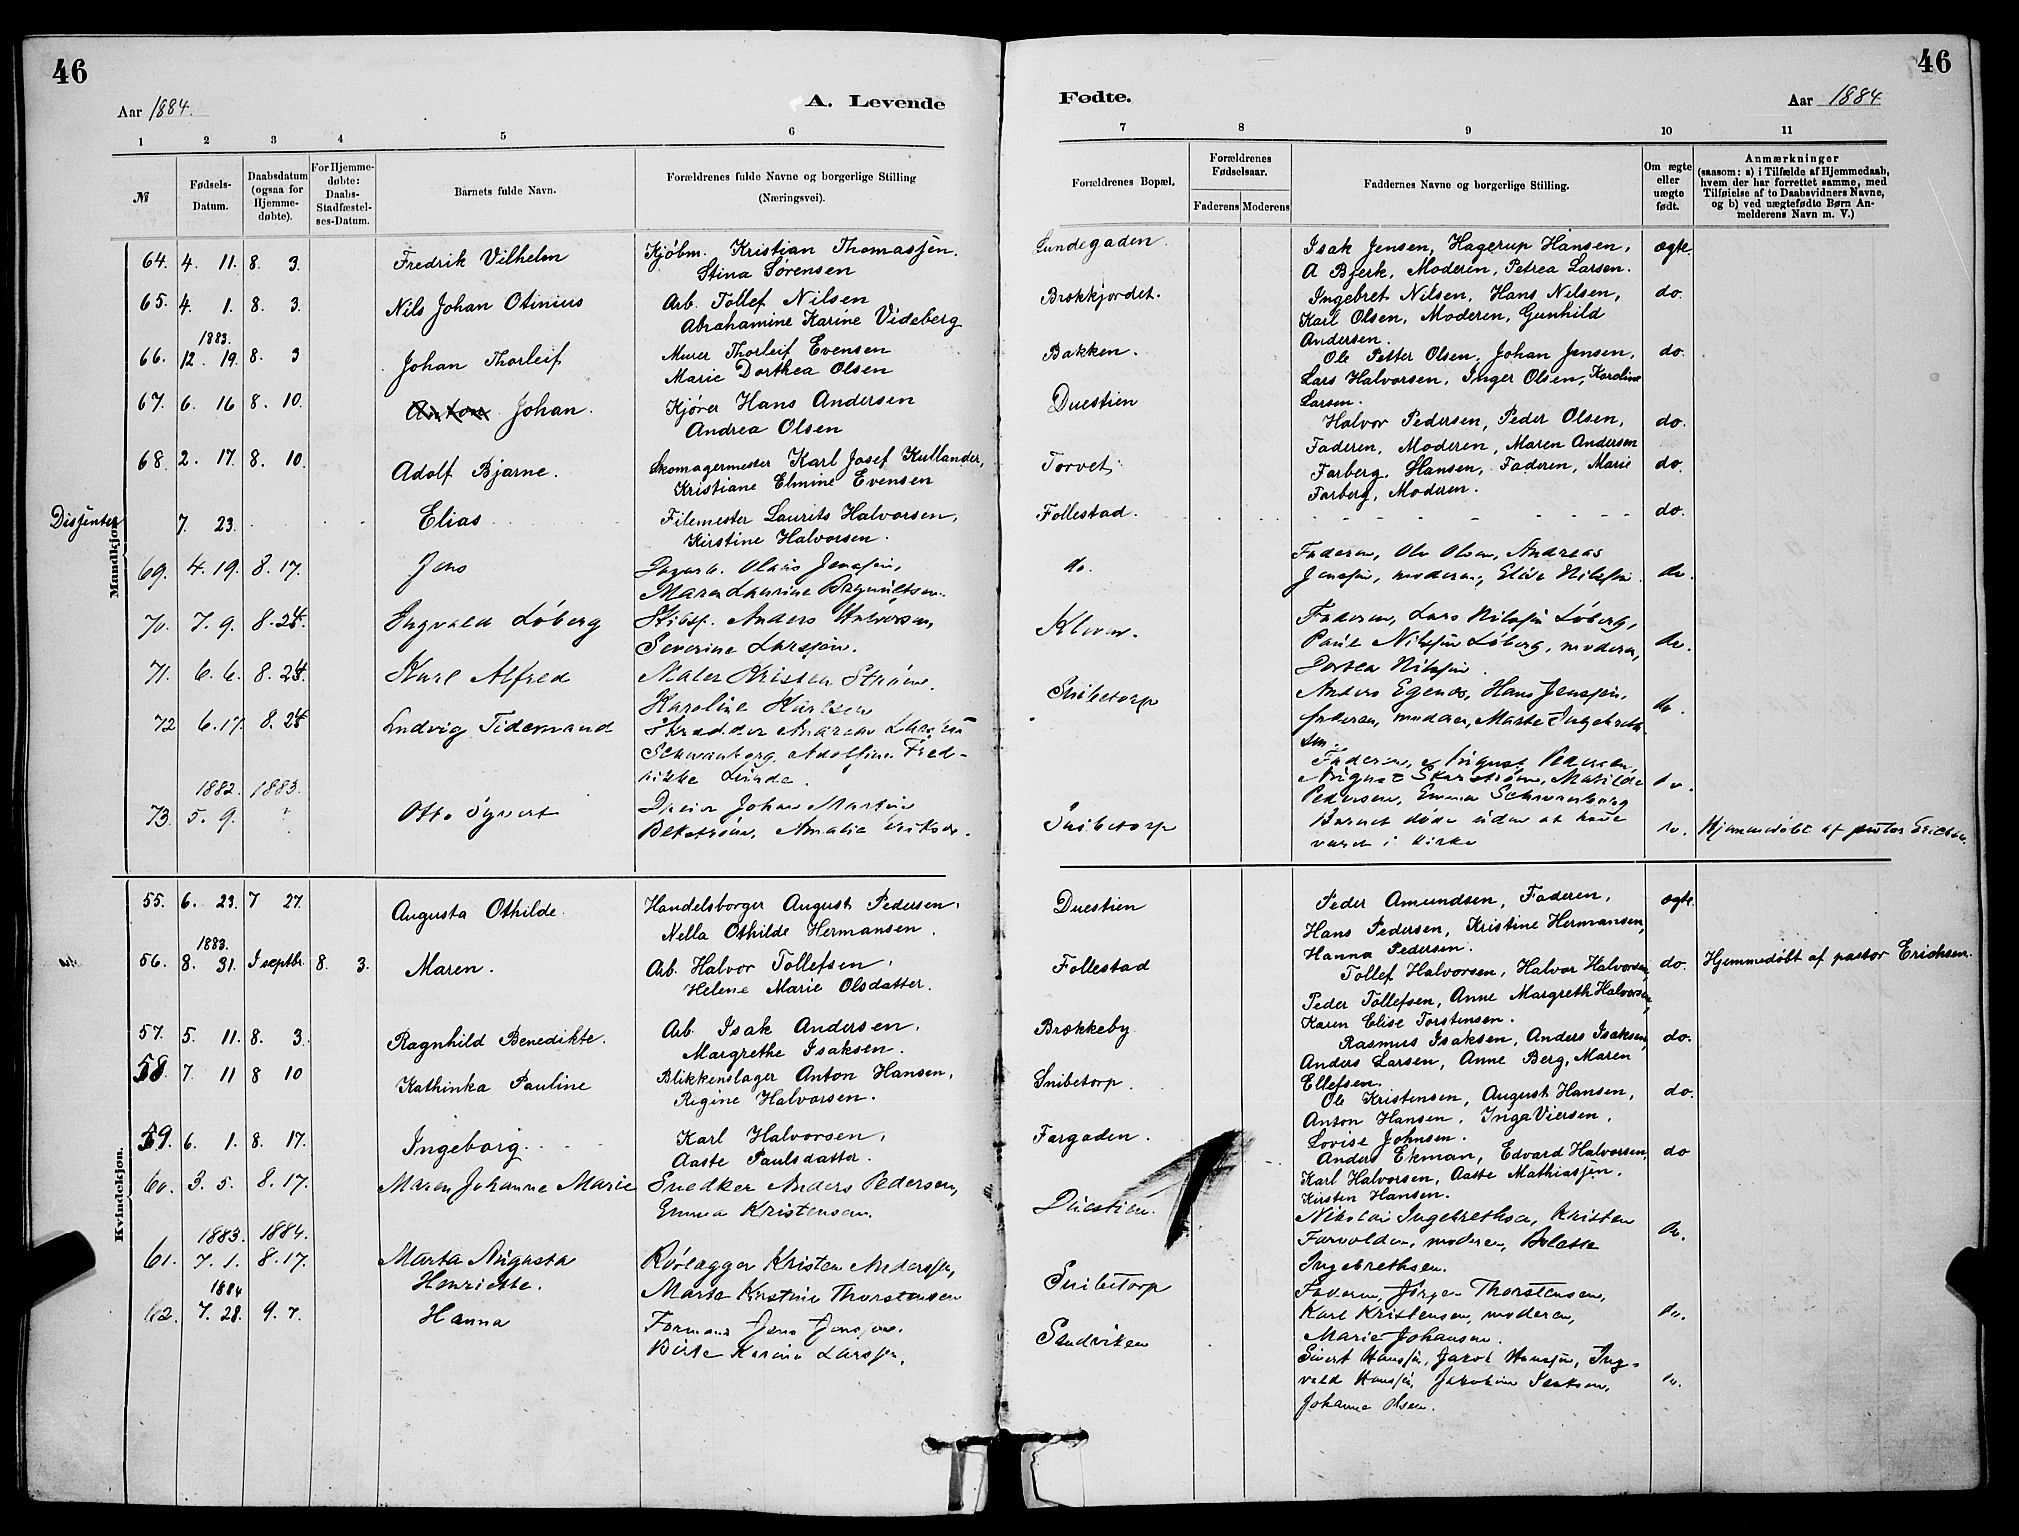 46
46
Aar 1884.
A. Levende
Fødte.
Aar 1884
1 2 3 4 5 6
7 8 9 10 11
№
Fødsels-Datum.
Daabsdatum (ogsaa for Hjemme-døbte).
For Hjemme-døbte: Daabs-Stadfæstel-ses-Datum.
Barnets fulde Navn.
Forældrenes fulde Navne og borgerlige Stilling (Næringsvei).
Forældrenes Bopæl.
Forældrenes Fødselsaar.
Faderens Moderens
Faddernes Navne og borgerlige Stilling.
Om ægte eller uægte født.
Anmærkninger
(saasom: a) i Tilfælde af Hjemmedaab,
hvem der har forrettet samme, med
Tilføielse af to Daabsvidners Navne,
og b) ved uægtefødte Børn An-
melderens Navn m. V.)
Mandkjøn.
64. 4. 11. 8. 3. Fredrik Vilhelm Kjøbm. Kristian Thomassen, Lundegaden. Isak Jensen, Hagerup Hansen, ægte.
Stina Sørensen A Bjerk, Moderen, Petrea Larsen.
65. 4. 1. 8. 3. Nils Johan Otinius Arb. Tollef Nilsen Brækkjordet. Ingebret Nilsen, Hans Nilsen, do.
Abrahamine Karine Videberg Karl Olsen, Moderen, Gunhild
1883. Andersen.
66. 12. 19. 8. 3 Johan Thorleif Murer Thorleif Evensen Bakken. Ole Petter Olsen, Johan Jensen, do.
Marie Dorthea Olsen Lars Halvorsen, Inger Olsen, Karoline
Larsen.
67. 6. 16 8. 10. Anton Johan. Kjører Hans Andersen Duestien Halvor Pedersen, Peder Olsen, do.
Andrea Olsen Faderen, Moderen, Maren Andersen
68. 2. 17. 8. 10. Adolf Bjarne. Skomagermester Karl Josef Kullander, Torvet Farberg, Hansen, Faderen, Marie do.
Kristiane Elmine Evensen Farberg, Moderen.
Dissenter 7. 23. Elias Filemester Laurits Halvorsen, Follestad. do.
Kirstine Halvorsen.
69. 4. 19. 8. 17. Jens Olaus Jenssen, do. Faderen, Ole Olsen, Andreas
Maren Laurine Jenssen, moderen, Elise Nilssen. do.
70. 7. 9. 8. 24. Ingvald Løberg Anders Halvorsen, Kleven. Faderen, Lars Nilssen Løberg,
Severine Larssen. Paul Nilssen Løberg, moderen, do.
Dortea Nilssen.
71. 6. 6. 8. 24. Karl Alfred Maler Kristen Strøm, Snibetorp Anders Egenæs, Hans Jenssen,
Karoline Karlsen faderen, moderen, Marte Ingebreth- do.
sen.
72 6. 17. 8. 24 Ludvig Tidemand Skrædder Andreas
Schwanberg, Adolfine Fred-
rikke Lunde. Faderen, August Pedersen,
August Skarstrøm, Matilde do.
Pedersen, Emma Schwanberg
1882. 1883.
73. 5. 9. " Otto Syvert Dreier Johan Martin Snibetorp Barnet døde uden at have
Bekstrøm, Amalie Eriksen. været i kirke do. Hjemmedøbt af pastor Erichsen.
Kvindekjøn.
55. 6. 23. 7 27. Augusta Othilde. Handelsborger August Pedersen, Duestien Peder Amundsen, Faderen, ægte.
Nella Othilde Hermansen. Hans Pedersen, Kristine Hermansen,
1883. Hanna Pedersen.
56. 8. 31. 1 septbr. 8. 3. Maren. Arb. Halvor Tollefsen, Follestad Tollef Halvorsen, Halvor Halvorsen, do. Hjemmedøbt af pastor Erichsen.
Helene Marie Olsdatter. Peder Tollefsen, Anne Margreth Halvorsen,
Karen Elise Torstensen.
57. 5. 11. 8. 3. Ragnhild Benedikte. Arb. Isak Andersen, Brækkeby Rasmus Isaksen, Anders Isaksen, do.
Margrethe Isaksen. Anders Larsen, Anne Berg, Maren
Ellefsen.
58. 7. 11 8 10 Kathinka Pauline Blikkenslager Anton Hansen, Snibetorp. Ole Kristensen, August Hansen, do.
Regine Halvorsen. Anton Hansen, Inga Viersen,
Lovise Johnsen.
59. 6. 1. 8. 17. Ingeborg. Karl Halvorsen, Fargaden. Anders Ekman, Edvard Halvorsen, do
Aaste Paulsdatter. Karl Halvorsen, Aaste Mathiassen,
Kirsten Hansen.
60. 3. 5. 8. 17. Maren Johanne Marie Snedker Anders Pedersen, Duestien. Nikolai Ingebrethsen, Kristen
Emma Kristensen. Farvolden, moderen, Bolette do.
Ingebrethsen.
1883. 1884.
61. 7. 1. 8. 17. Marta Augusta Rørlægger Kristen Anderssen, Snibetorp Faderen, Jørgen Thorstensen,
Henriette. Marte Kirstine Thorstensen Karl Kristensen, moderen, do.
Marie Johansen.
1884
62. 7. 28. 9. 7. Hanna Formand Jens Jenssen, Sandviken Sivert Hanssen, Jakob Hanssen, Ing-
Birte Karine Larssen. vald Hanssen, Jakobine Isaksen, do.
Johanne Olsen.